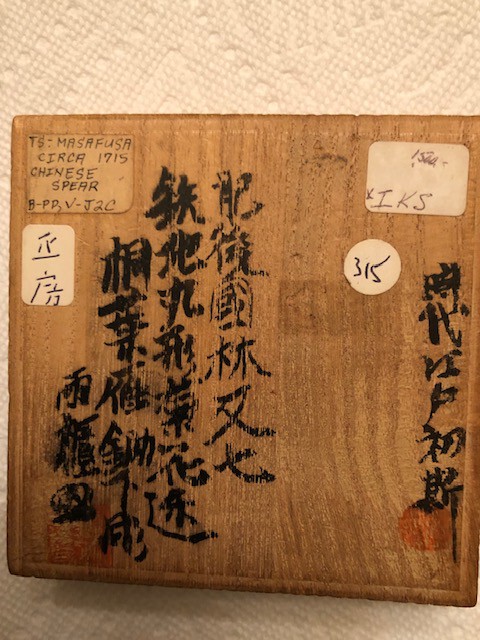 TS:- MASAFUSA
CIRCA 1715
CHINESE
SPEAR
正房
IKS
315
時代江戸初期
肥後國林又七
鉄地丸形菊花透
桐葉雁
両櫃